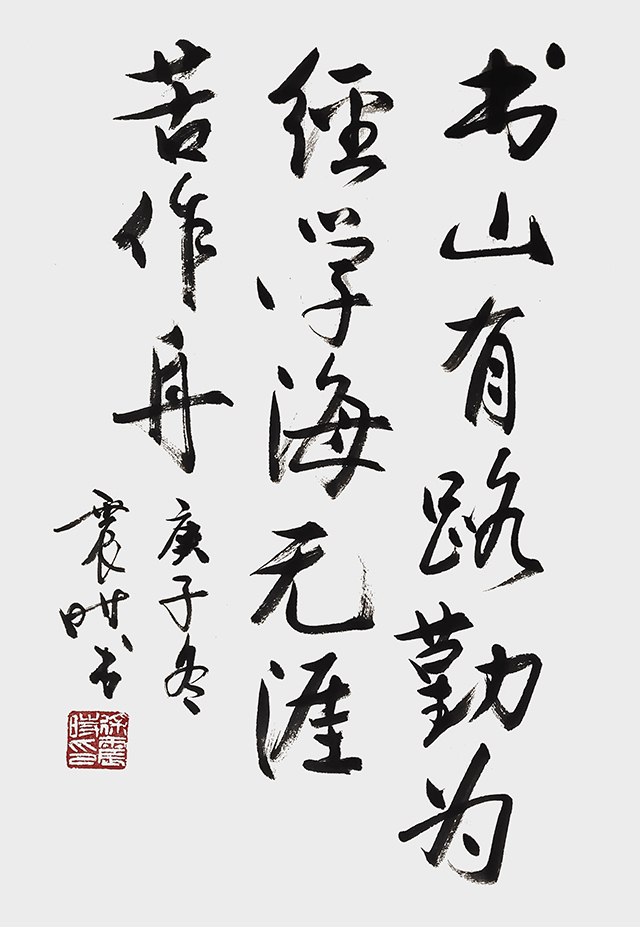 书山有路勤为
經学海无涯
苦作舟
庚子冬
震时书
徐震時印